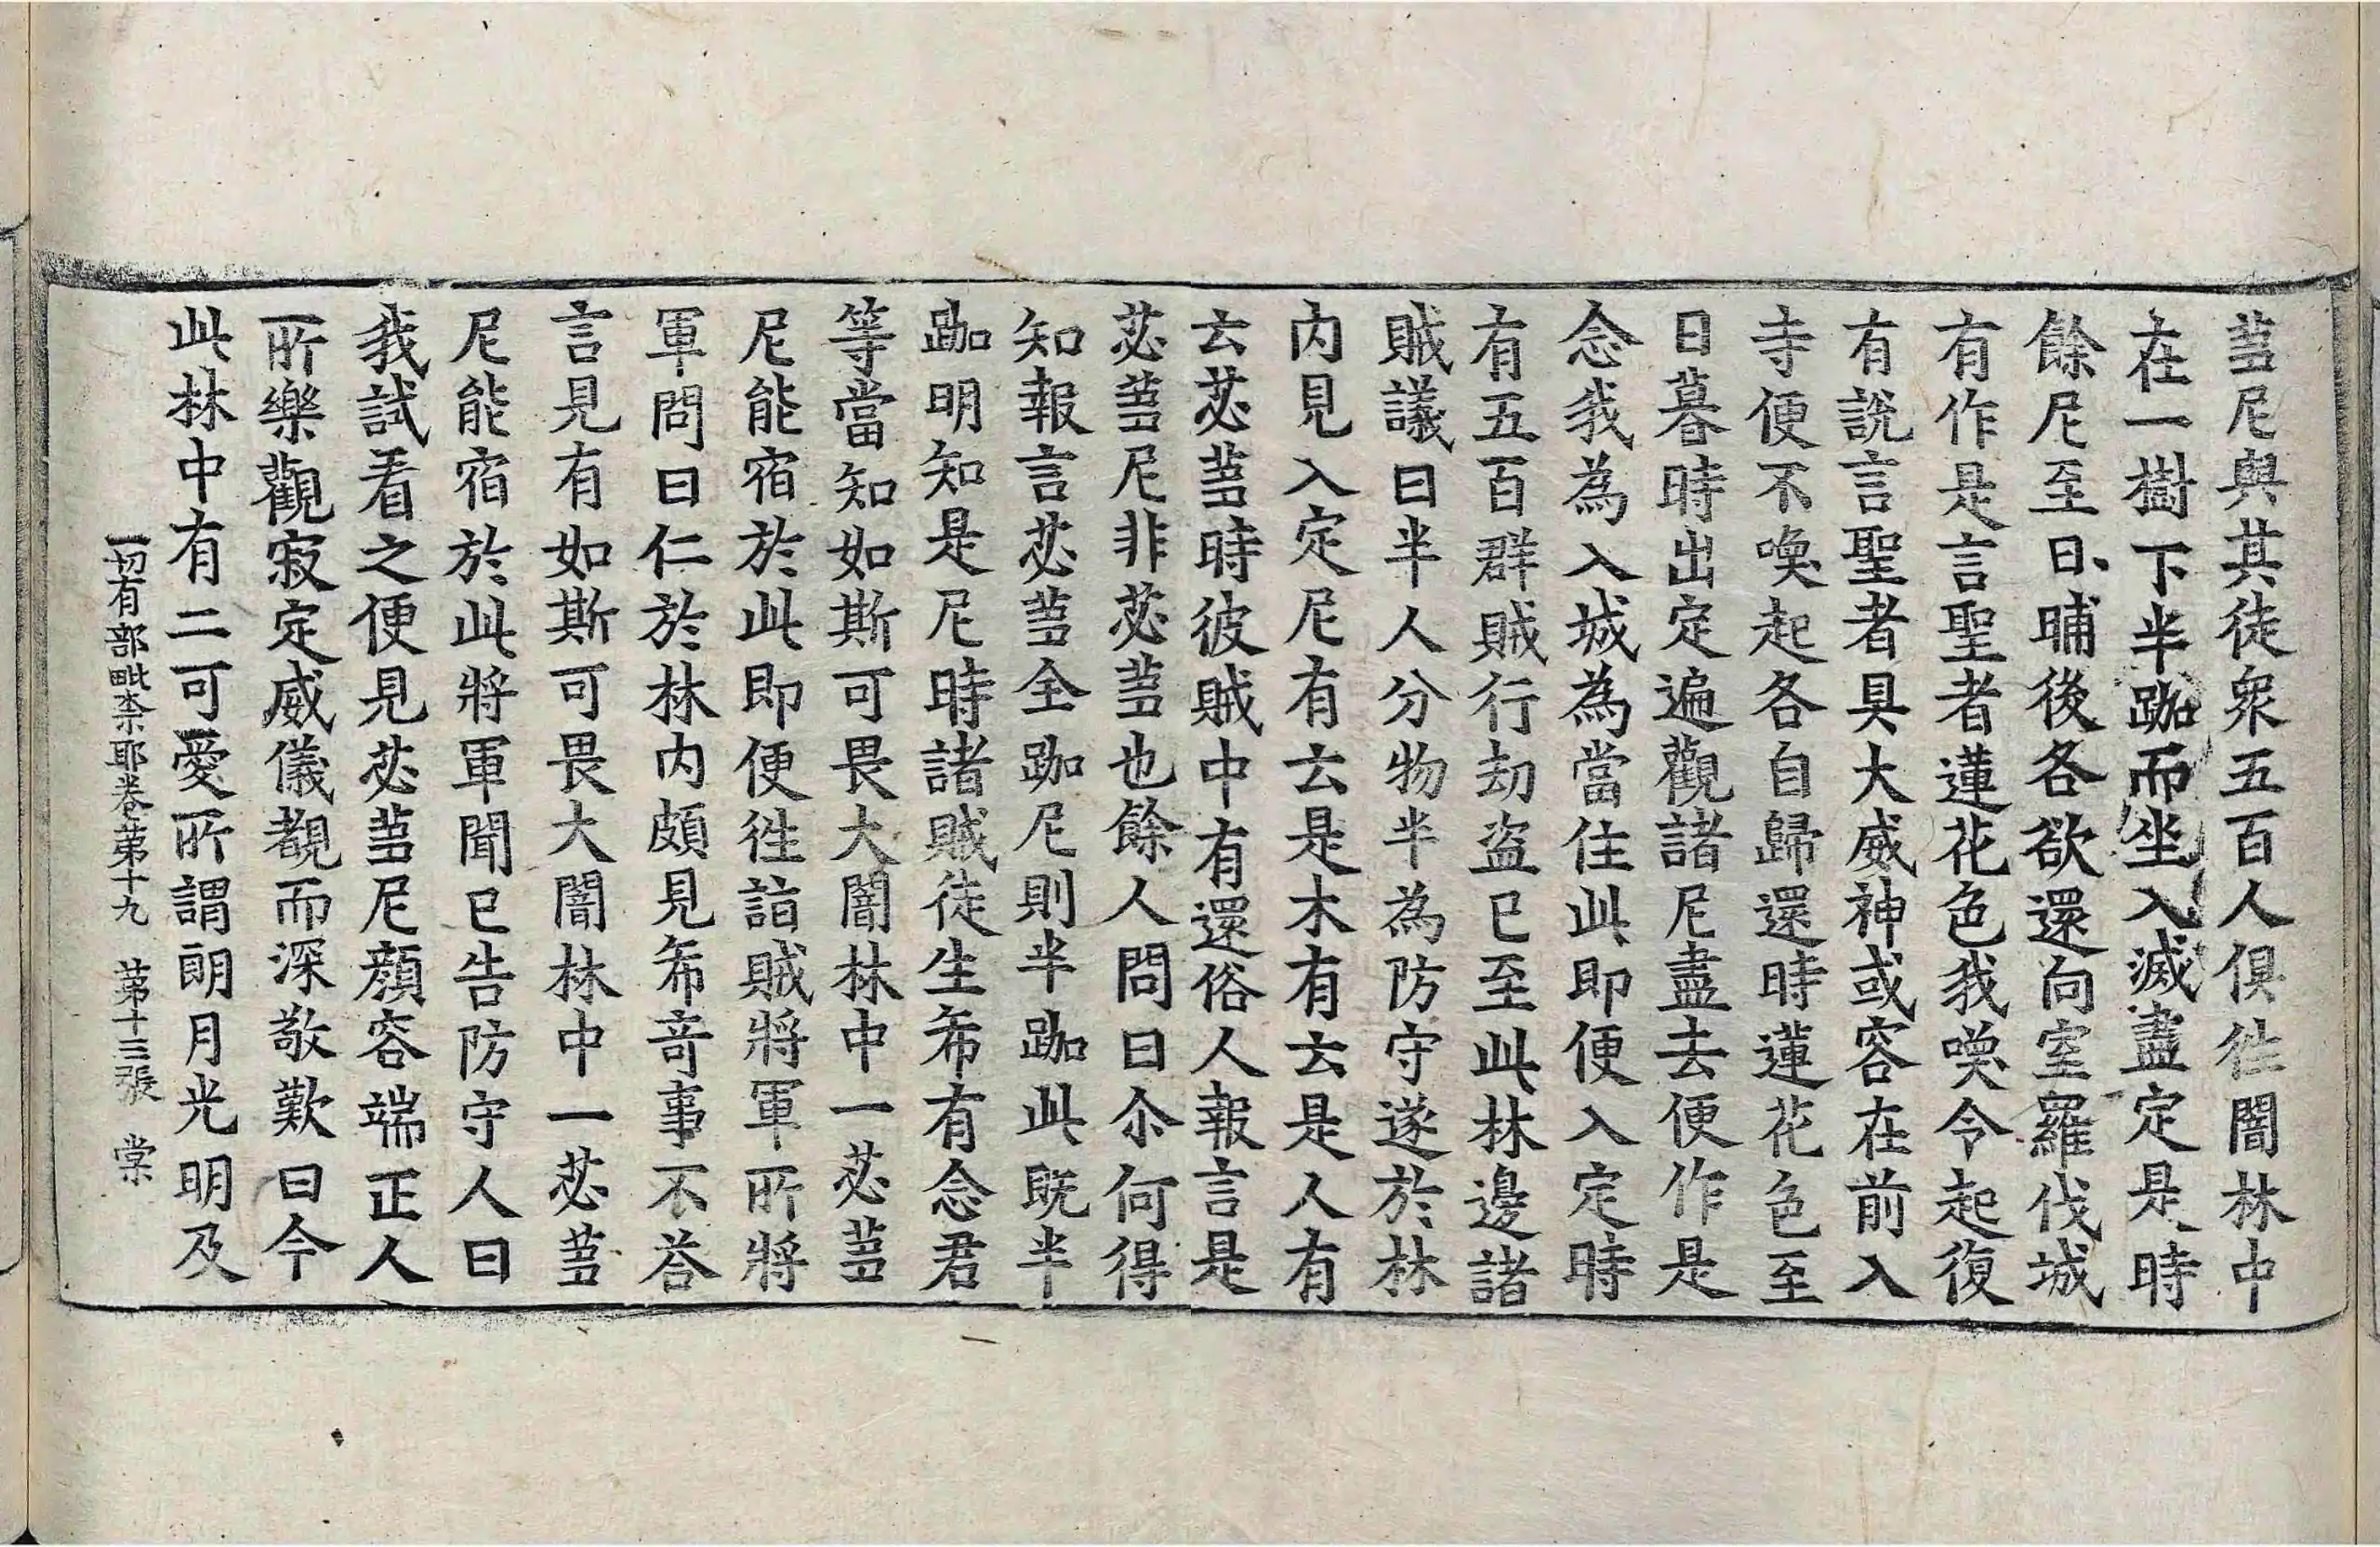 蒭尼與其徒衆五百人俱徃闇林中
在一樹下半跏而坐入滅盡定是時
餘尼至日晡後各欲還向室羅伐城
有作是言聖者蓮花色我喚令起復
有說言聖者具大威神或容在前入
寺便不喚起各自歸還時蓮花色至
日暮時出定遍觀諸尼盡去便作是
念我為入城為當住此即便入定時
有五百群賊行劫盜已至此林邊諸
賊議曰半人分物半為防守遂於林
内見入定尼有云是木有云是人有
云苾蒭時彼賊中有還俗人報言是
苾蒭尼非苾蒭也餘人問曰尒何得
知報言苾蒭全跏尼則半跏此既半
跏明知是尼時諸賊徒生希有念君
等當知如斯可畏大闇林中一苾蒭
尼能宿於此即便徃詣賊將軍所將
軍問曰仁於林内頗見希竒事不荅
言見有如斯可畏大闇林中一苾蒭
尼能宿於此將軍聞已告防守人曰
我試看之便見苾蒭尼顔容端正人
所樂觀寂定威儀覩而深敬歎曰今
此林中有二可愛所謂朗月光明及
一切有部毗柰耶卷第十九　第十三張　棠